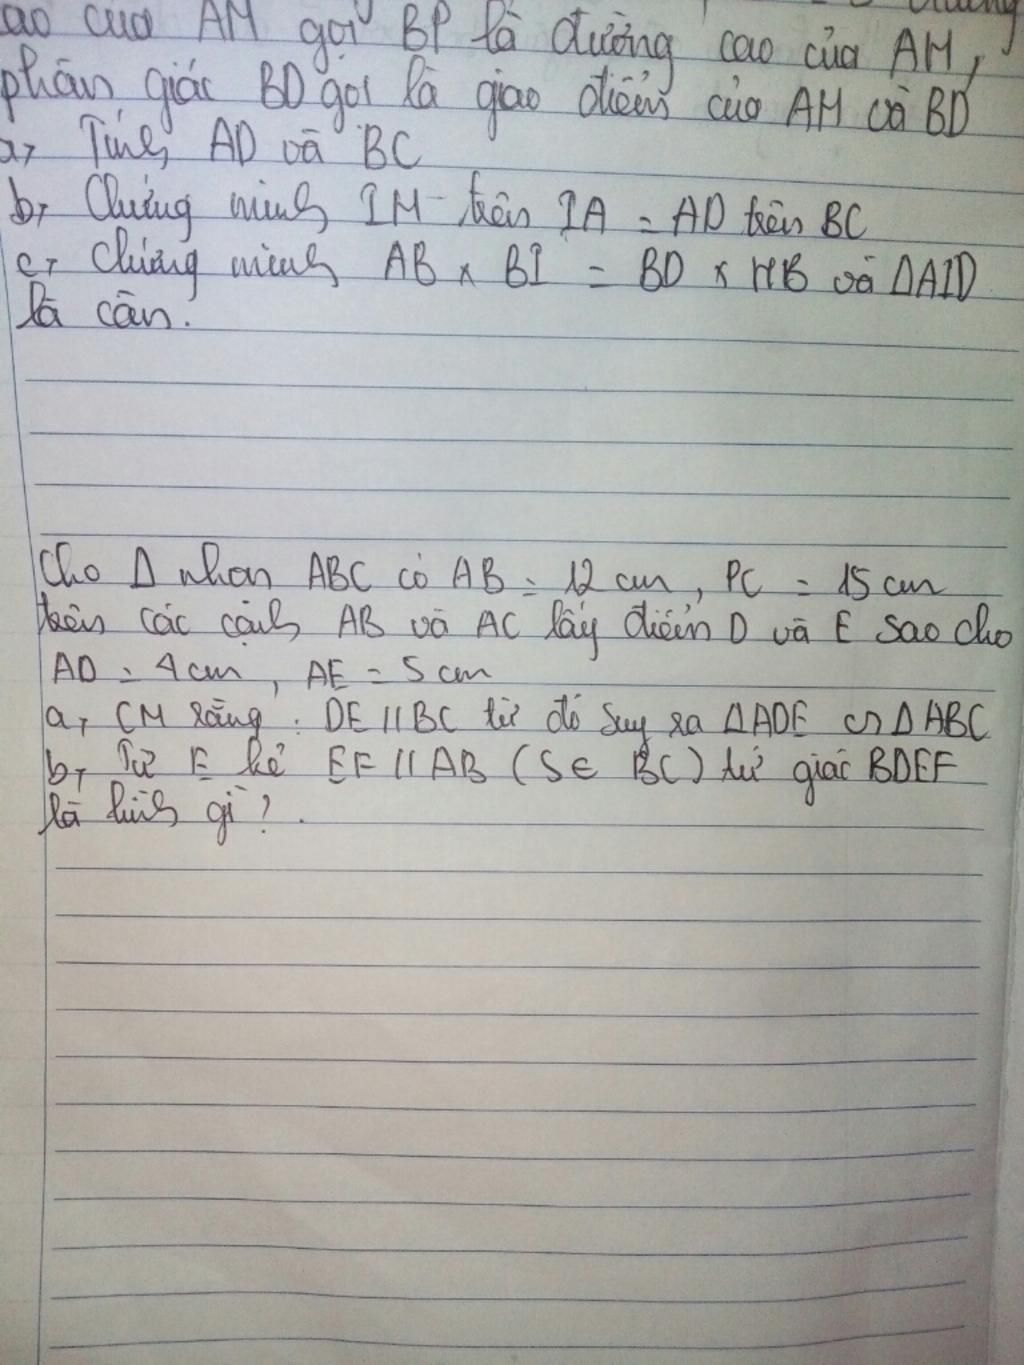 ao của AM gọi BP là đường cao của AM,
phân giác BD gọi là giao điểm của AM và BD
a, Tính AD và BC
b, Chứng minh IM trên IA = AD trên BC
c, Chứng minh AB x BI = BD x HB và ΔAID
là cân.
Cho Δ nhọn ABC có AB = 12 cm, PC = 15 cm
trên các cạnh AB và AC lấy điểm D và E sao cho
AD = 4 cm, AE = 5 cm
a, CM rằng: DE // BC từ đó suy ra ΔADE ∽ ΔABC
b, Từ E kẻ EF // AB (S ∈ BC) tứ giác BDEF
là hình gì?.